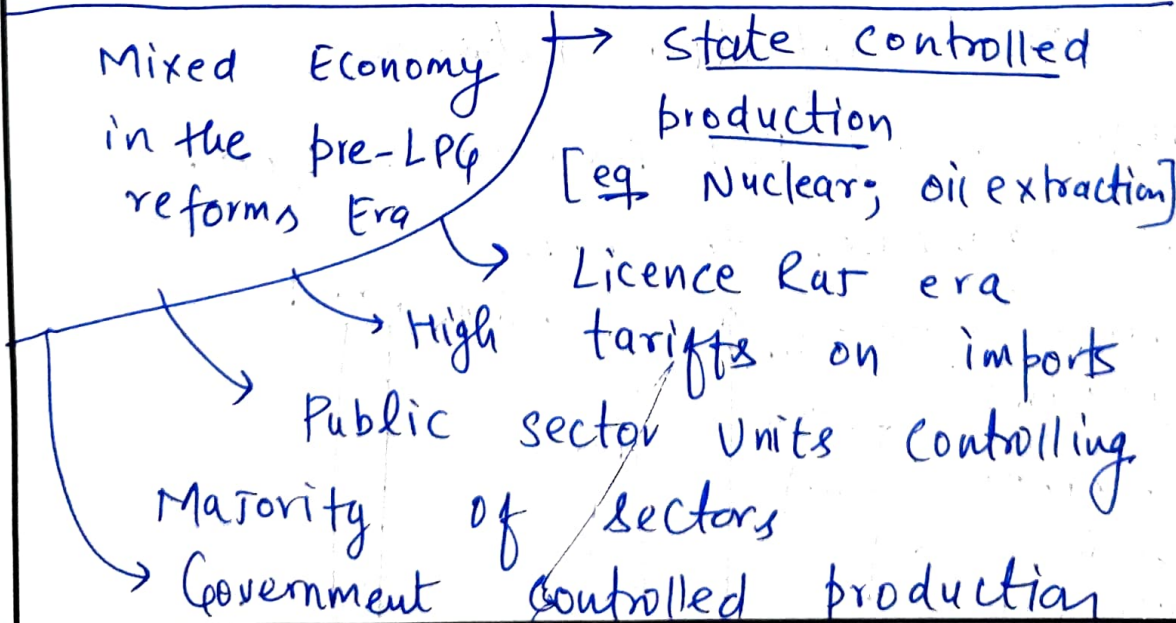 Mixed Economy
in the pre-LPG
reforms Era
→ State controlled
production
[eg. Nuclear; oil extraction]
→ Licence Raj era
→ High tariffs on imports
→ Public sector Units controlling
Majority of sectors
→ Government controlled production